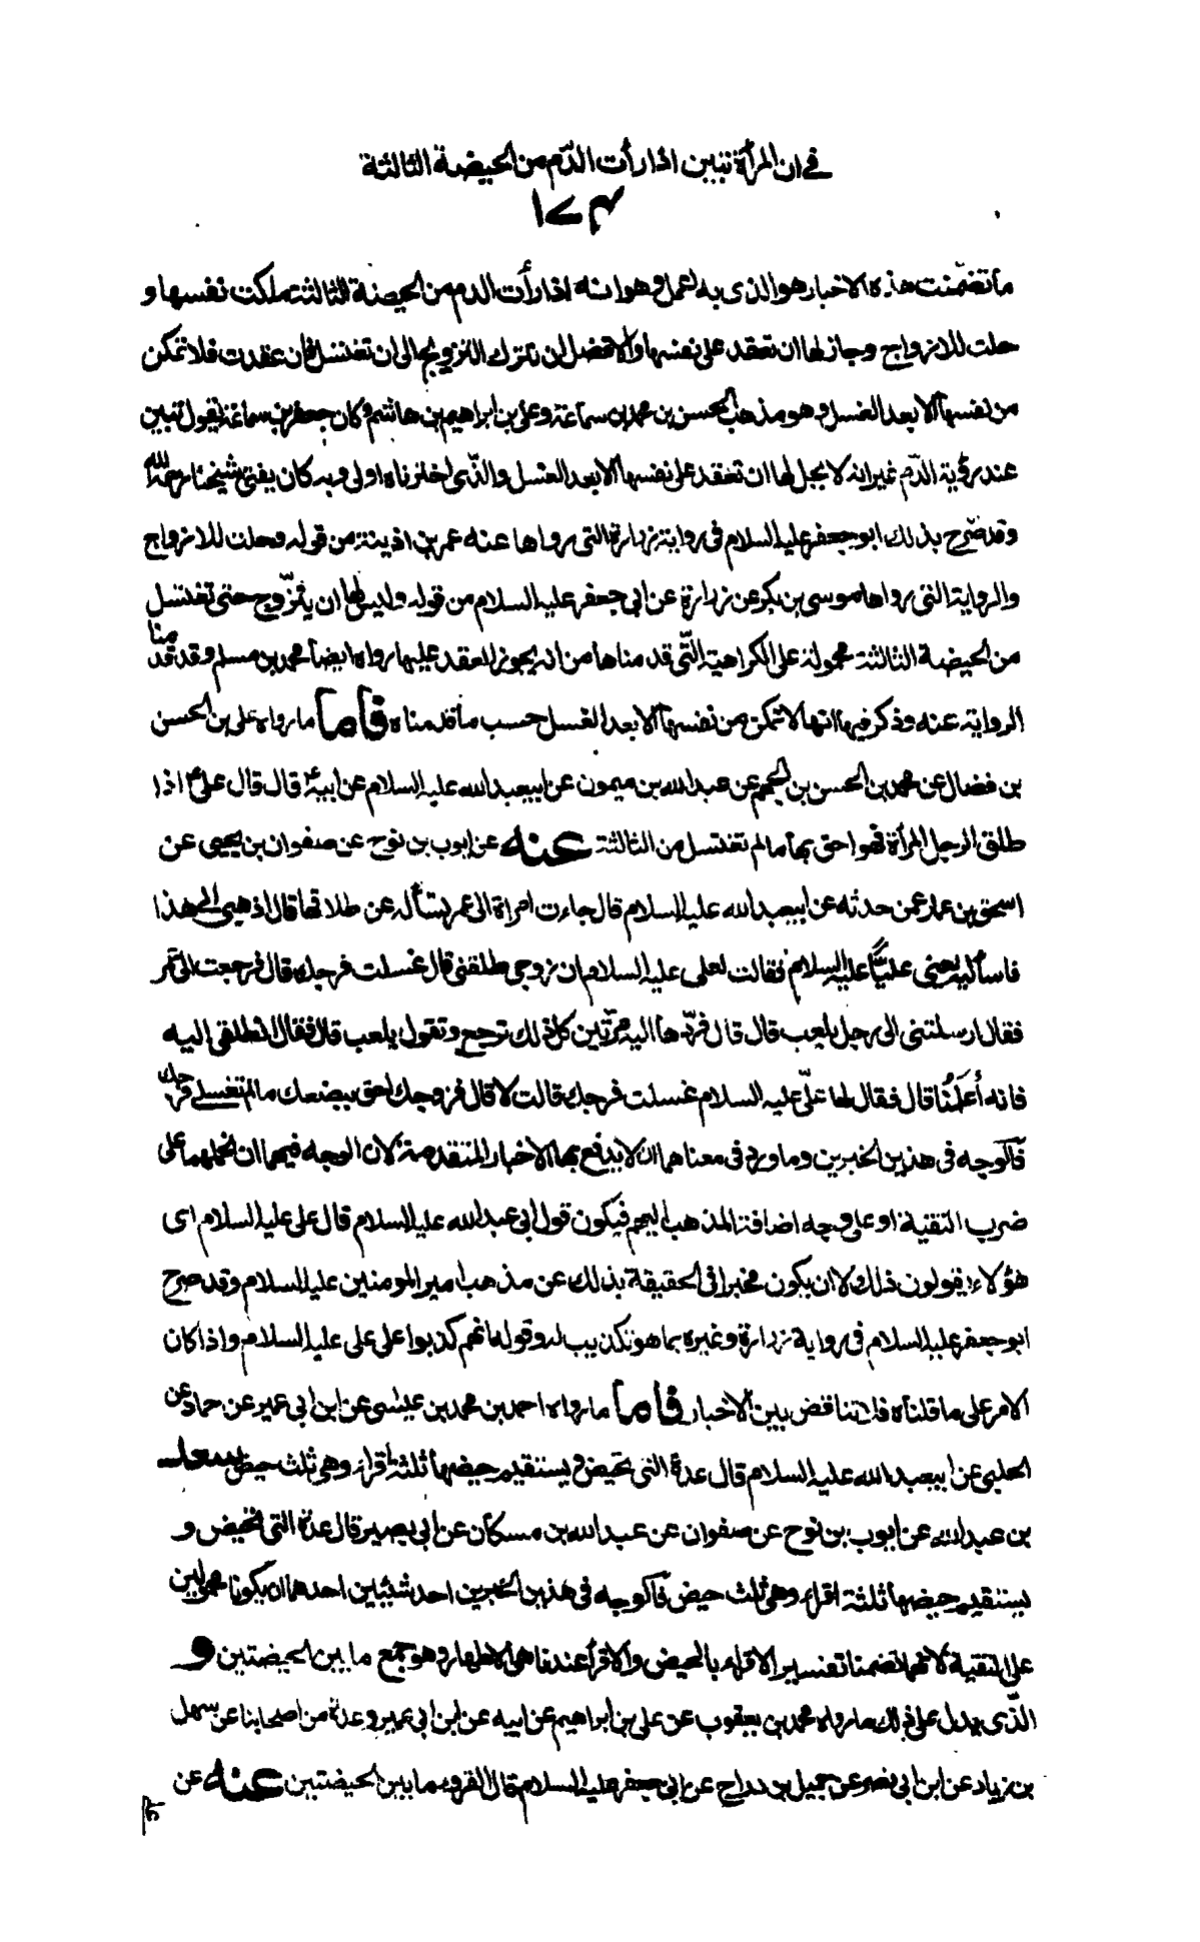 في ان المرأة تبين اذا رأت الدّم من الحيضة الثالثة
١٧٤
ما تضمّنت هذه الاخبار هو الذى به العمل وهو انه اذا رأت الدم من الحيضة الثالثة ملكت نفسها و
حلت للازواج وجاز لها ان تعقد على نفسها والافضل ان تترك التزويج الى ان تغتسل فان عقدت فلا تمكن
من نفسها الا بعد الغسل وهو مذهب الحسن بن محمد بن سماعة وعلى بن ابراهيم بن هاشم وكان جعفر بن سماعة يقول تبين
عند رؤية الدّم غير انه لا يحل لها ان تعقد على نفسها الا بعد الغسل والذّى اخترناه اولى وبه كان يفتى شيخنا رحمه الله
وقد صّرح بذلك ابو جعفر عليه السلام فى رواية زرارة التى رواها عنه عمر بن اذينة من قوله وحلت للازواج
والرواية التى رواها موسى بن بكر عن زرارة عن ابى جعفر عليه السلام من قوله وليس لها ان يتزّوج حتى تغتسل
من الحيضة الثالثة محمولة على الكراهية التّى قدمناها من انه يجوز العقد عليها رواه ايضا محمد بن مسلم وقد قدمنا
الرواية عنه وذكر فيها انها لا تمكن من نفسها الا بعد الغسل حسب ما قدمناه فاما ما رواه على بن الحسن
بن فضال عن محمد بن الحسن بن الجهم عن عبد الله بن ميمون عن ابيعبد الله عليه السلام عن ابيه ع قال قال على ع اذا
طلق الرجل المرأة فهو احق بها ما لم تغتسل من الثالثة عنه عن ايوب بن نوح عن صفوان بن يحيى عن
اسحق بن عمار عمن حدثه عن ابيعبد الله عليه السلام قال جاءت امراة الى عمر تسأله عن طلاقها قال اذهبى الى هذا
فاسأليه يعنى عليًّا عليه السلام فقالت لعلى عليه السلام ان زوجى طلقنى قال غسلت فرجك قال فرجعت الى عمر
فقال ارسلتنى الى رجل يلعب قال قال فردّها اليه مرّتين كل ذلك ترجع وتقول يلعب قال فقال انطلقى اليه
فانه أعلمُنا قال فقال لها علّى عليه السلام غسلت فرجك قالت لا قال فزوجك احق ببضعك ما لم تغسلى فرجك
فالوجه فى هذين الخبرين وما ورد فى معناهما ان لا يدفع بها الاخبار المتقدمة لان الوجه فيهما ان نحملهما على
ضرب التقية او على وجه اضافة المذهب اليهم فيكون قول ابى عبد الله عليه السلام قال على عليه السلام اى
هؤلاء يقولون ذلك لا ان يكون مخبرا فى الحقيقة بذلك عن مذهب امير المومنين عليه السلام وقد صرح
ابو جعفر عليه السلام فى رواية زرارة وغيره بما هو تكذيب له وقوله انهم كذبوا على على عليه السلام واذا كان
الامر على ما قلناه فلا تناقض بين الاخبار فاما ما رواه احمد بن محمد بن عيسى عن ابن ابى عمير عن حماد عن
الحلبى عن ابيعبد الله عليه السلام قال عدة التى تحيض ويستقيم حيضها ثلثة اقراء وهى ثلث حيض سعد
بن عبد الله عن ايوب بن نوح عن صفوان عن عبد الله بن مسكان عن ابى بصير قال عدة التى تحيض و
يستقيم حيضها ثلثة اقراء وهى ثلث حيض فالوجه فى هذين الخبرين احد شيئين احدهما ان يكونا محمولين
على التقية لانهما تضمنا تفسير الاقراء بالحيض والاقراء عندنا هى الاطهار وهو جمع ما بين الحيضتين و
الذّى يدل على ذلك ما رواه محمد بن يعقوب عن على بن ابراهيم عن ابيه عن ابن ابى عمير وعدة من اصحابنا عن سهل
بن زياد عن ابن ابى نصر عن جميل بن دراج عن ابى جعفر عليه السلام قال القرء ما بين الحيضتين عنه عن